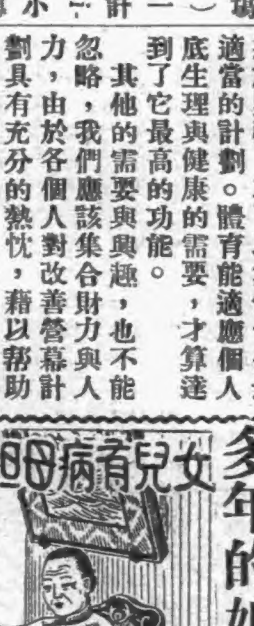 適當的計劃。體育能適應個人
底生理與健康的需要，才算達
到了它最高的功能。
其他的需要與興趣，也不能
忽略，我們應該集合財力與人
力，由於各個人對改善營幕計
劃具有充分的熱忱，藉以幫助
多年的
女兒有病母